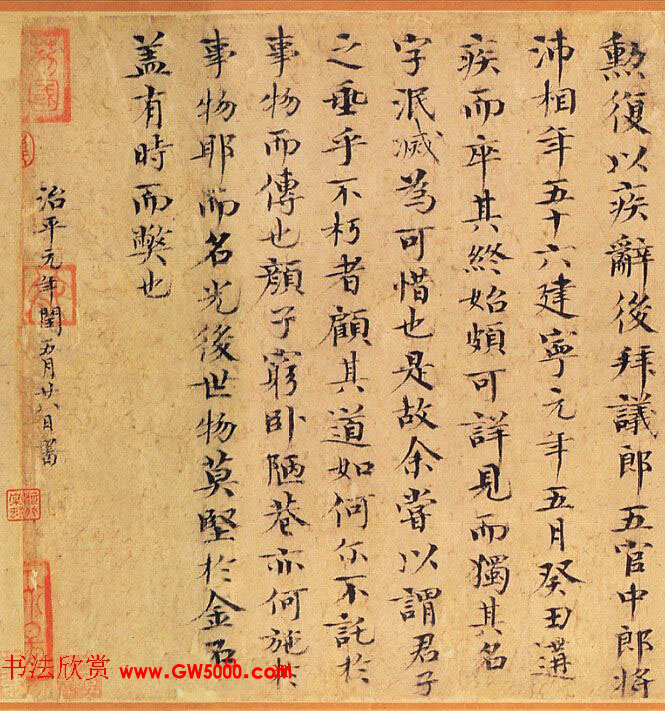 勲復以疾辭後拜議郎五官中郎將
沛相年五十六建寧元年五月癸丑遘
疾而卒其終始頗可詳見而獨其名
字泯滅為可惜也是故余嘗以謂君子
之垂乎不朽者顧其道如何尓不託於
事物而傳也顏子窮卧陋巷亦何施於
事物耶而名光後世物莫堅於金石
盖有時而獘也
治平元年閏五月廿八日書
书法欣赏 www.GW5000.com